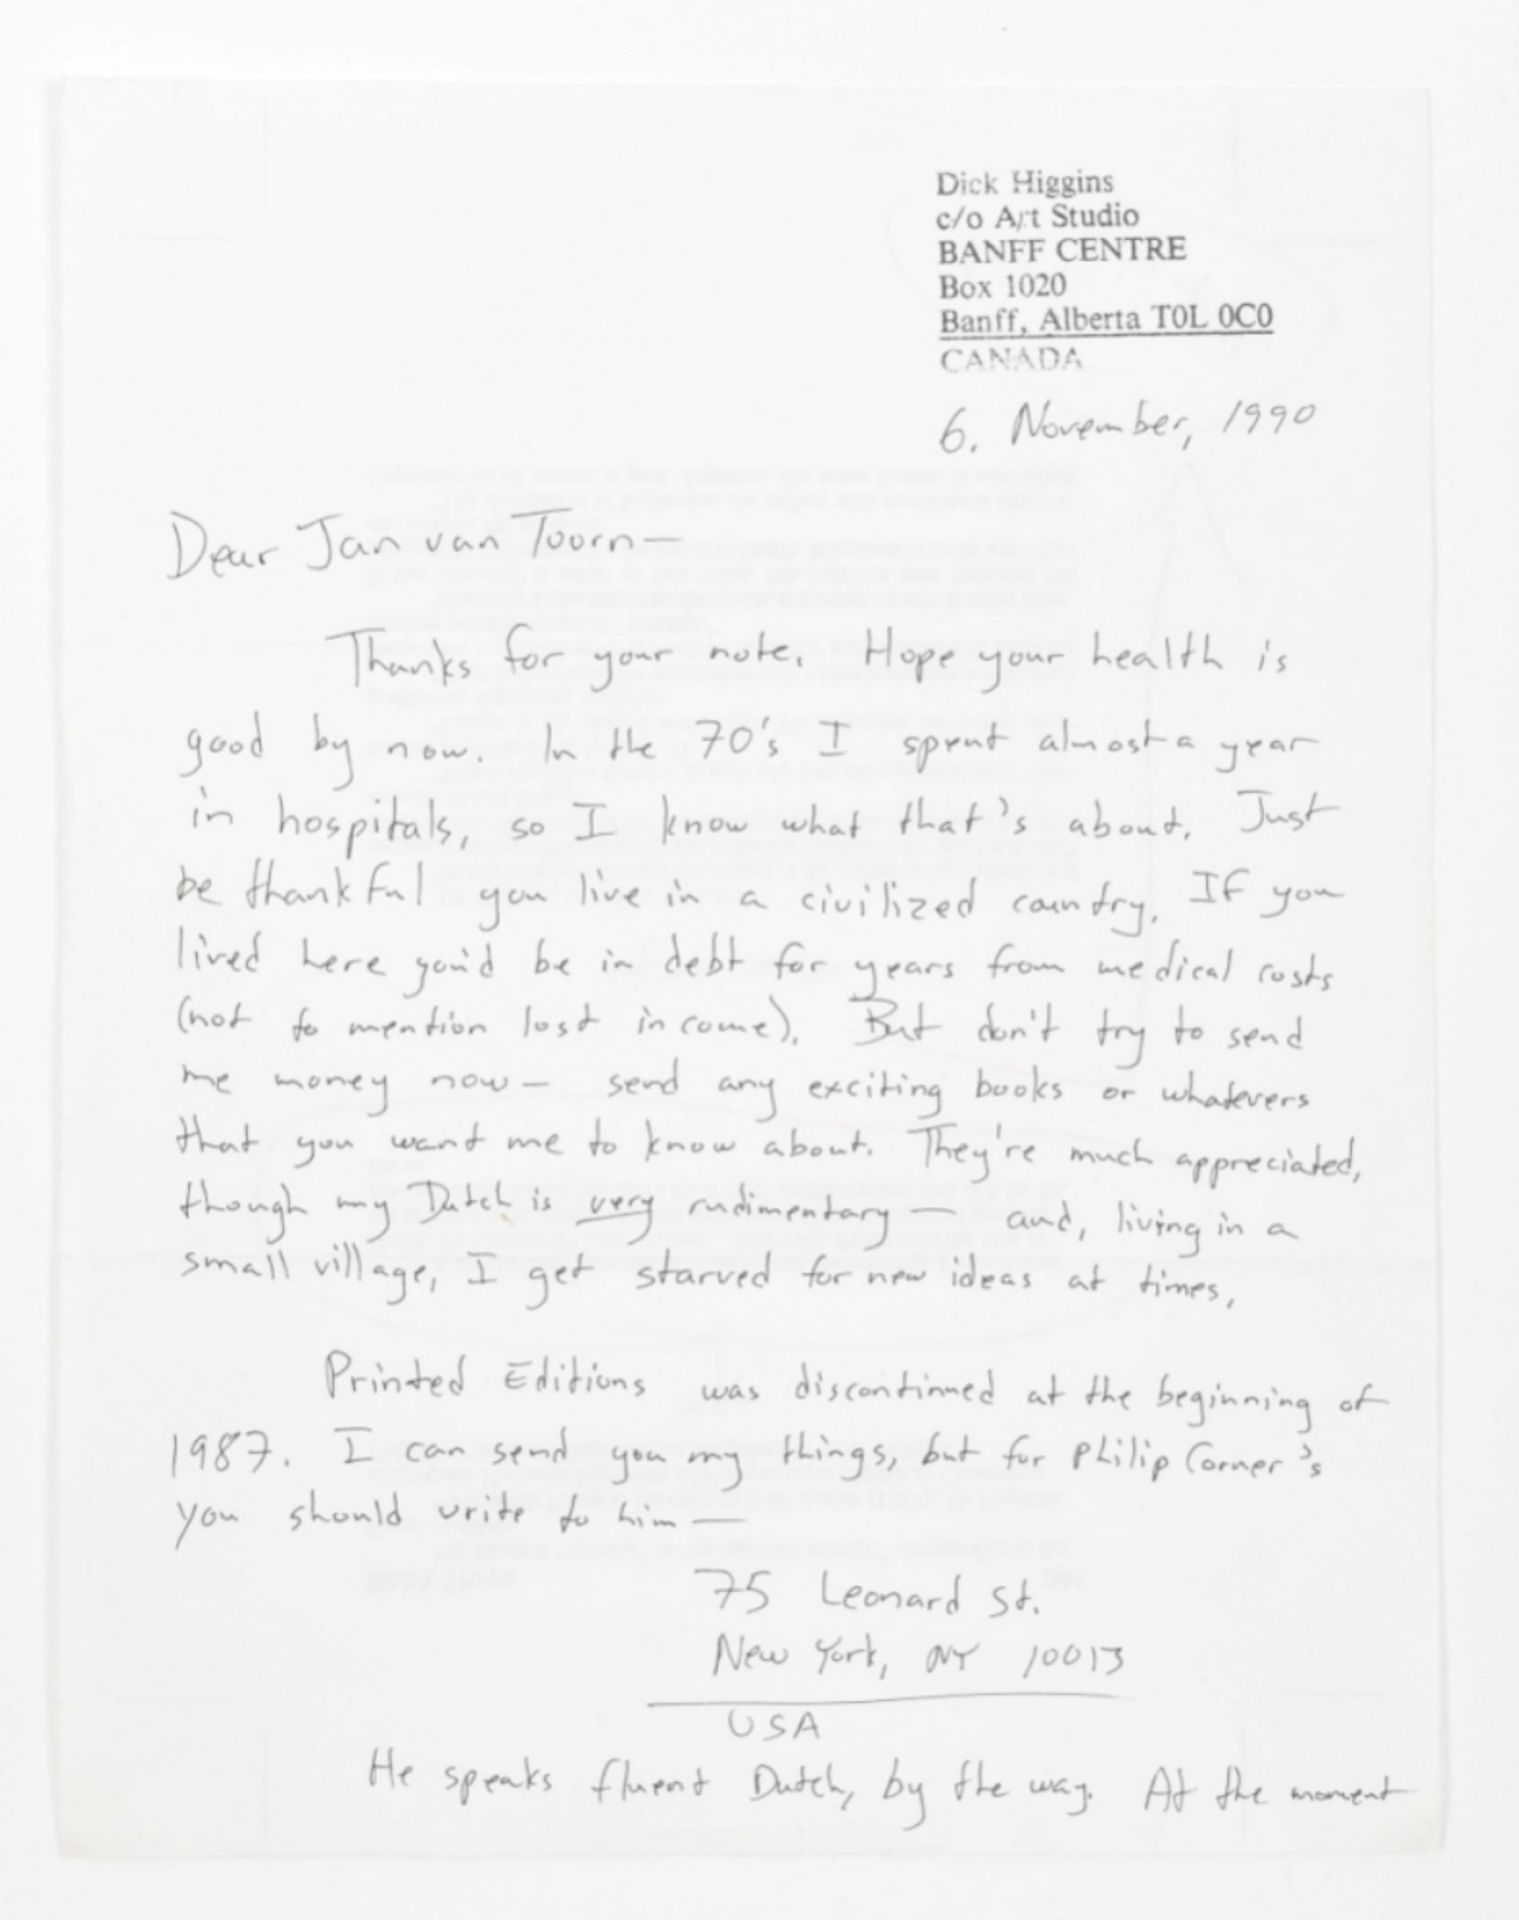 Dick Higgins
c/o Art Studio
BANFF CENTRE
Box 1020
Banff, Alberta T0L 0C0
CANADA
6. November, 1990
Dear Jan van Toorn—
Thanks for your note. Hope your health is
good by now. In the 70's I spent almost a year
in hospitals, so I know what that's about. Just
be thankful you live in a civilized country. If you
lived here you'd be in debt for years from medical costs
(not to mention lost income). But don't try to send
me money now— send any exciting books or whatevers
that you want me to know about. They're much appreciated,
though my Dutch is very rudimentary— and, living in a
small village, I get starved for new ideas at times,
Printed Editions was discontinued at the beginning of
1987. I can send you my things, but for Philip Corner's
you should write to him—
75 Leonard St.
New York, NY 10013
USA
He speaks fluent Dutch, by the way. At the moment